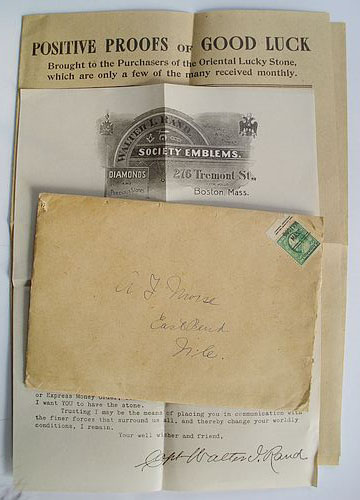 POSITIVE PROOFS OF GOOD LUCK
Brought to the Purchasers of the Oriental Lucky Stone,
which are only a few of the many received monthly.
WALTER I. RAND
SOCIETY EMBLEMS.
DIAMONDS
276 Tremont St.,
Precious Stones
Boston Mass.
A J Morse
East
Me.
or Express Money Order,
I want YOU to have the stone.
Trusting I may be the means of placing you in communication with
the finer forces that surround us all, and thereby change your worldly
conditions, I remain.
Your well wisher and friend,
Capt Walter I. Rand